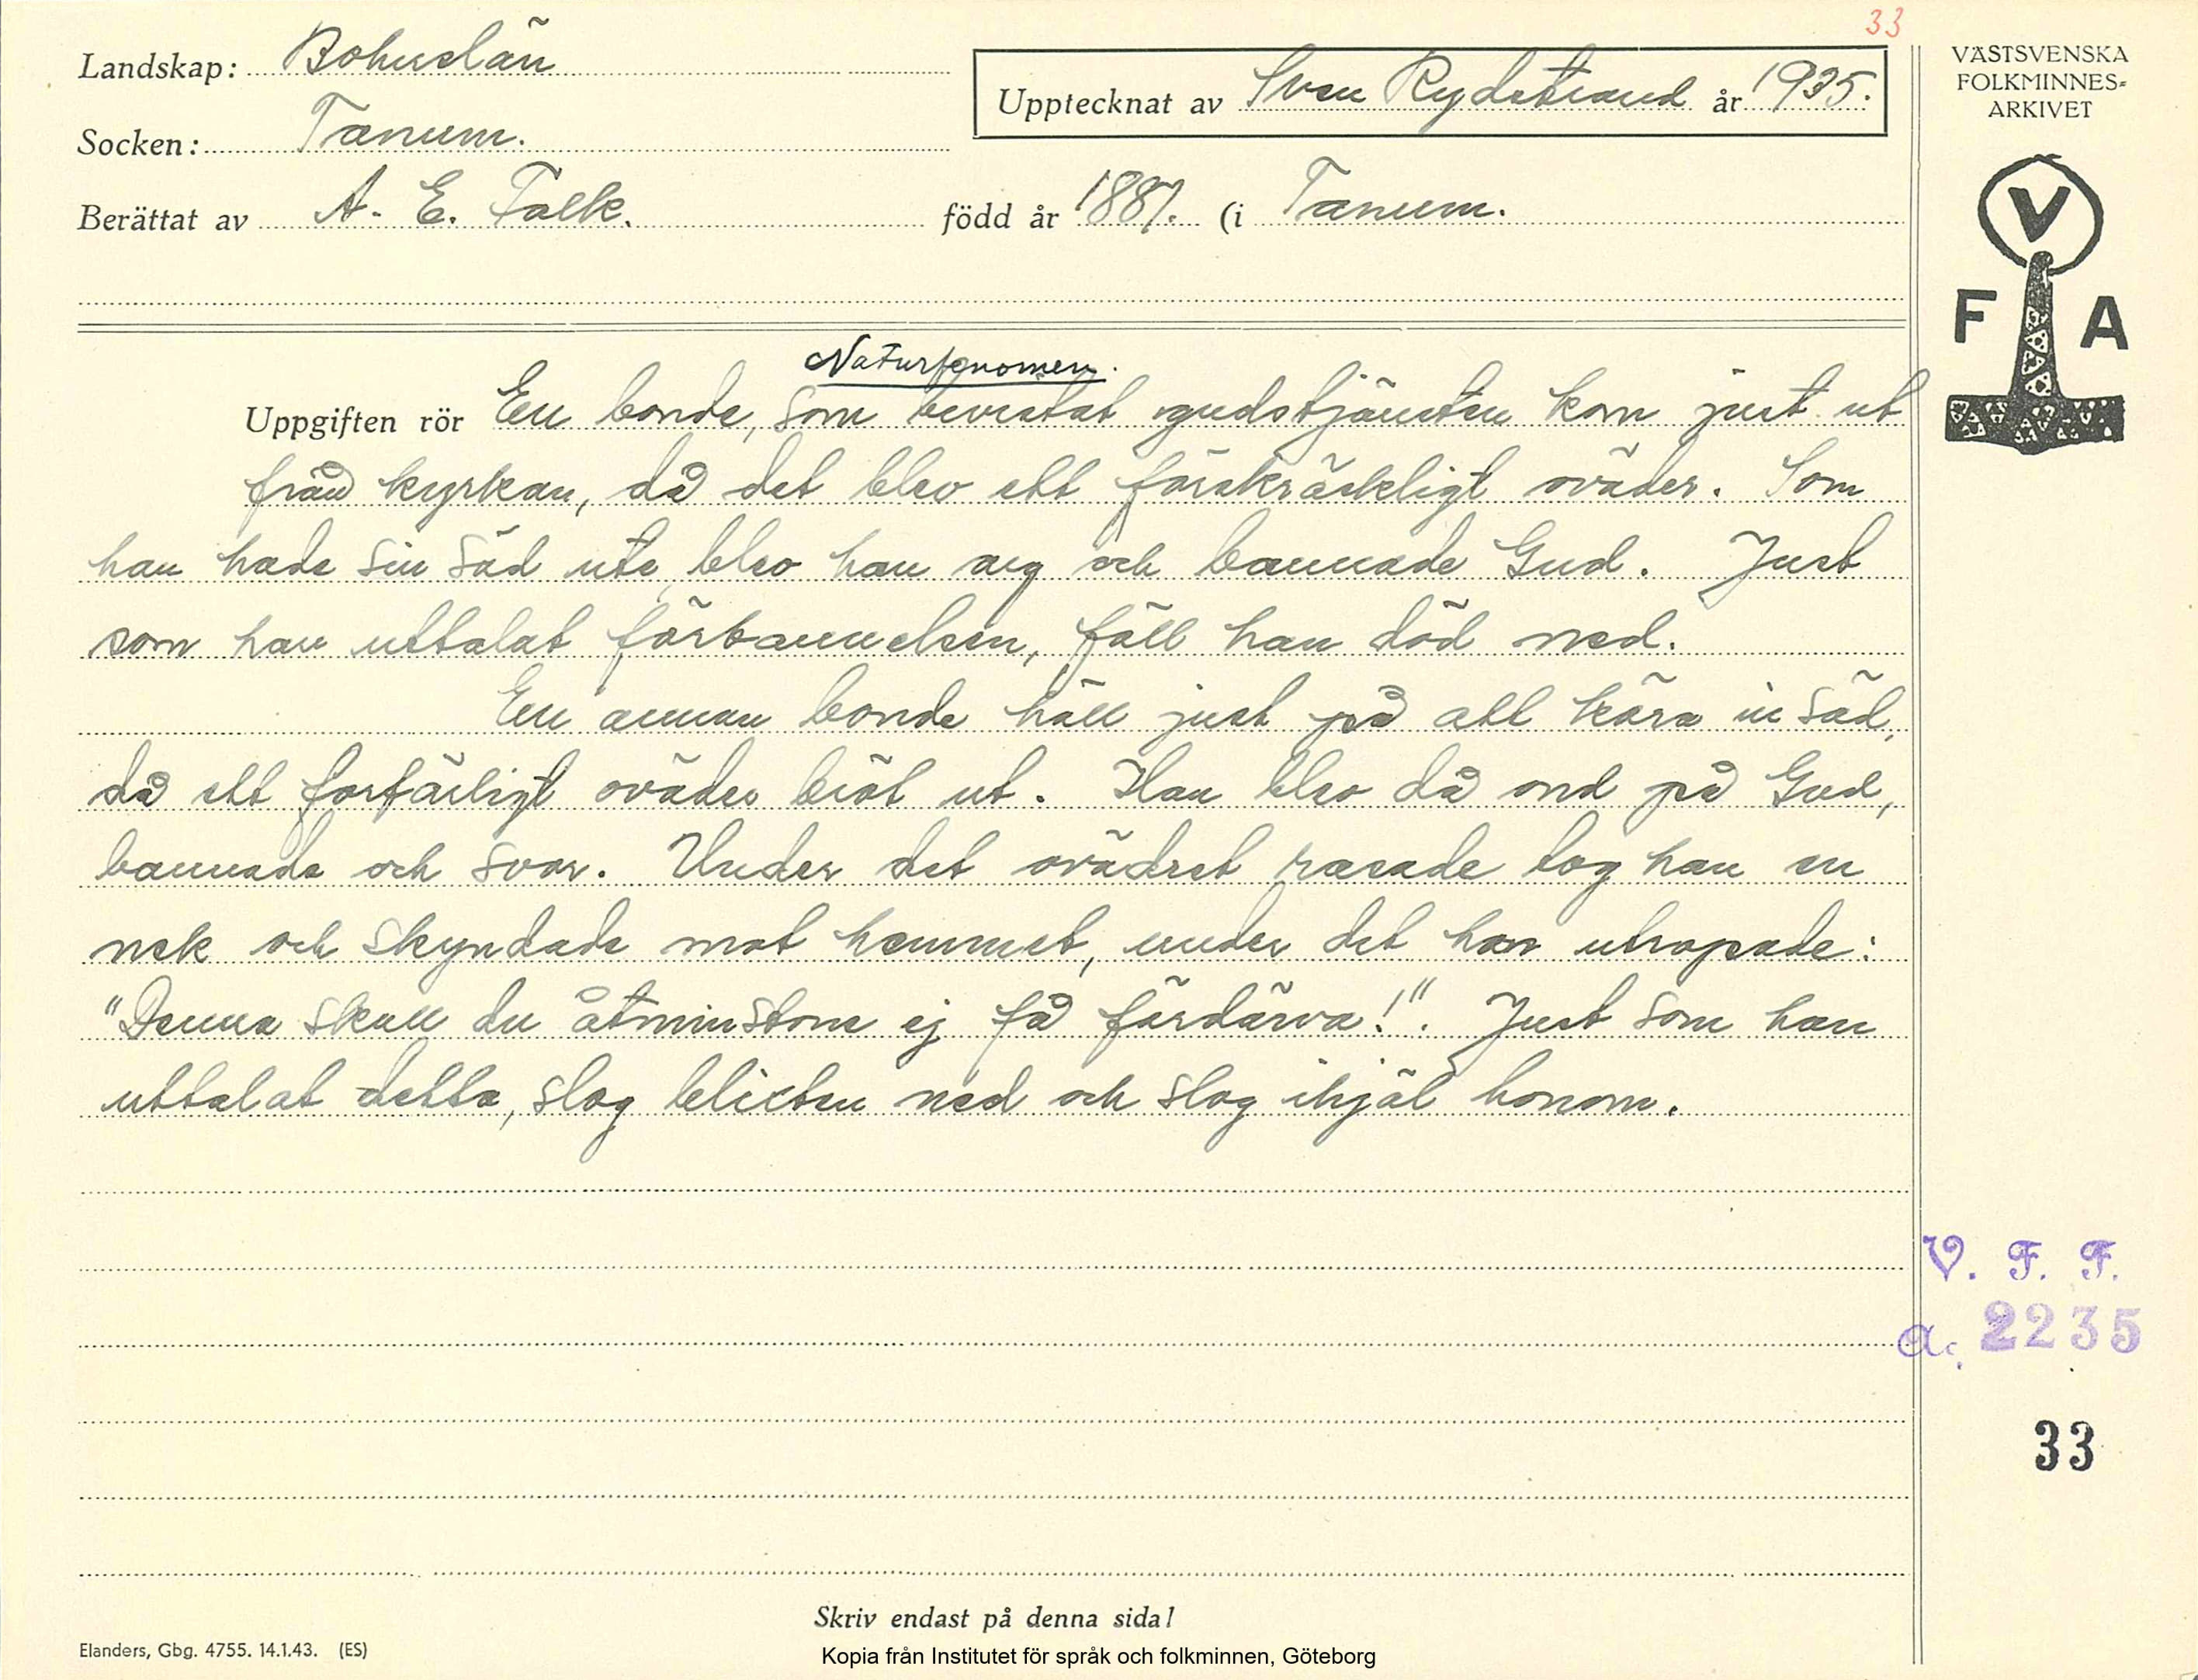 33
Landskap: Bohuslän
Upptecknat av Sven Rydstrand år 1935.
Socken: Tanum.
Berättat av A. E. Falk. född år 1887. (i Tanum.
VÄSTSVENSKA
FOLKMINNES-
ARKIVET
V
F A
Naturfenomen.
Uppgiften rör En bonde, som bevistat gudstjänsten kom just ut
från kyrkan, då det blev ett förskräckligt oväder. Som
han hade sin säd ute, blev han arg och bannade Gud. Just
som han uttalat förbannelsen, föll han död ned.
En annan bonde höll just på att köra in säd,
då ett forfärligt oväder bröt ut. Han blev då ond på Gud,
bannade och svor. Under det ovädret rasade tog han en
nek och skyndade mot hemmet, under det han utropade:
"Denna skall du åtminstone ej få fördärva!". Just som han
uttalat detta, slog blixten ned och slog ihjäl honom.
V. F. F.
a. 2235
33
Skriv endast på denna sida!
Elanders, Gbg. 4755. 14.1.43. (ES)
Kopia från Institutet för språk och folkminnen, Göteborg